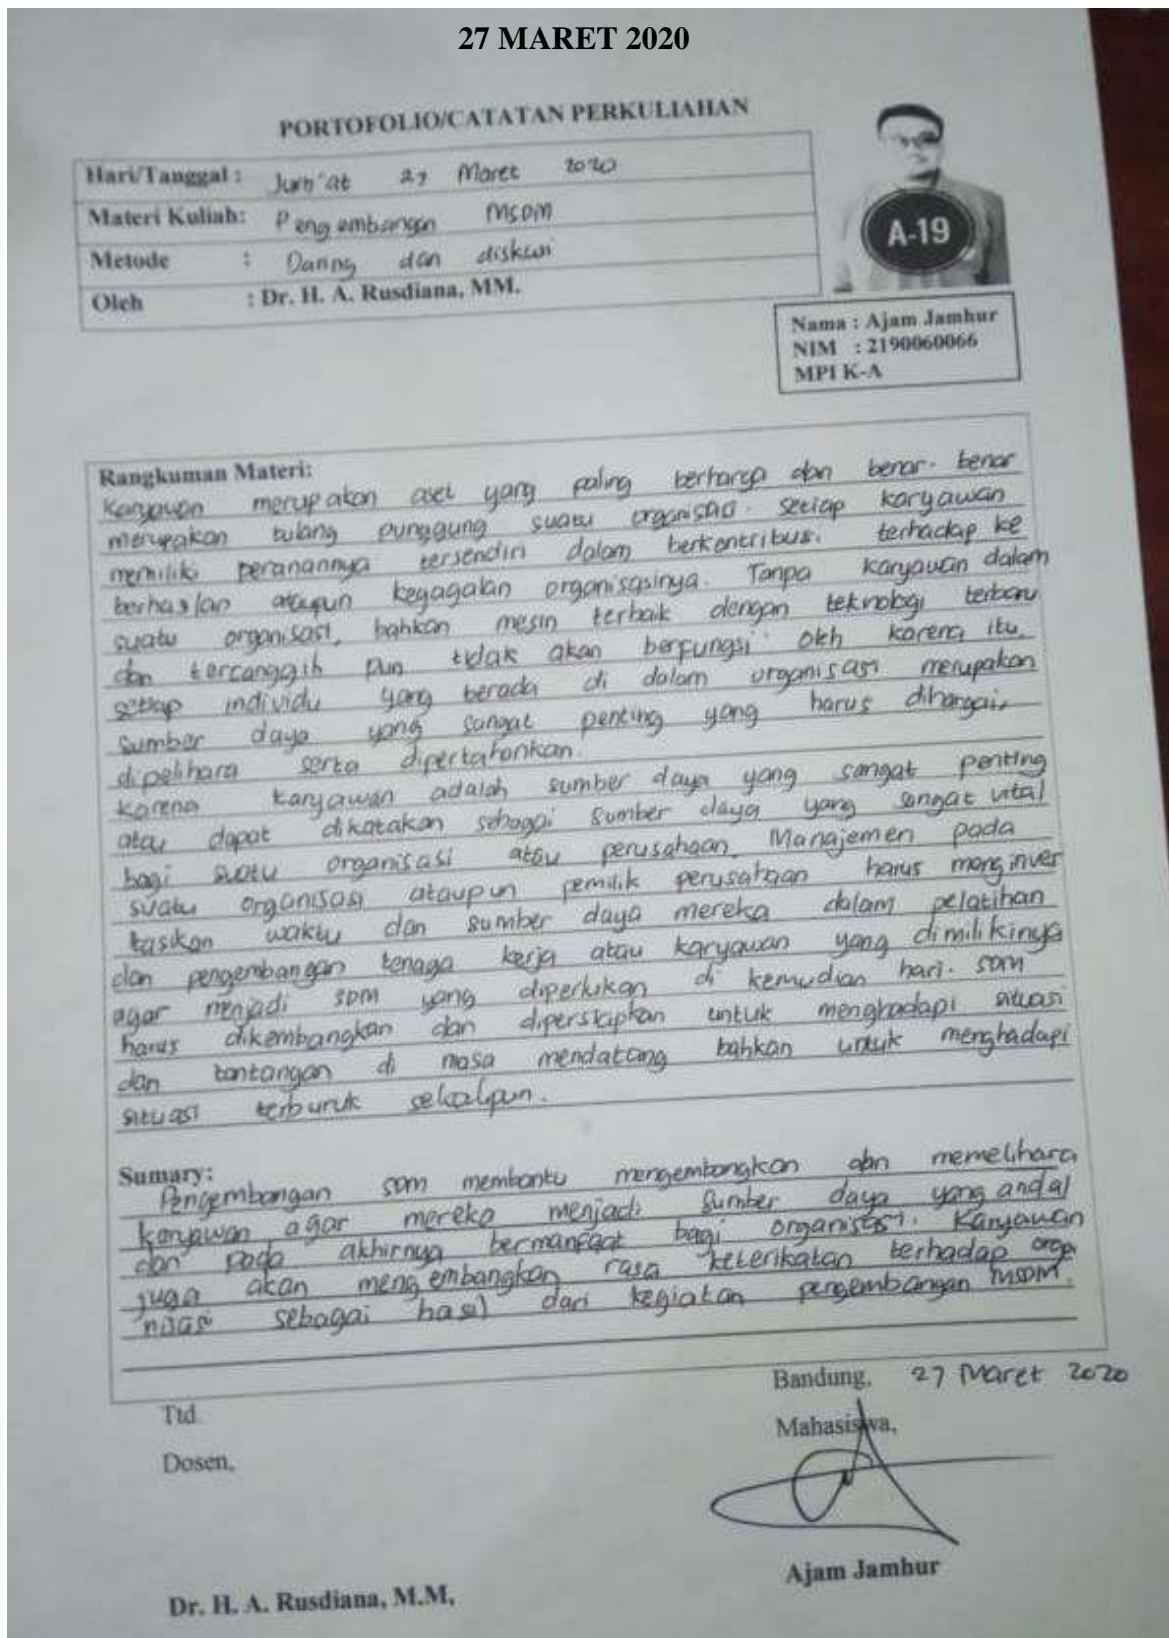 27 MARET 2020
PORTOFOLIO/CATATAN PERKULIAHAN
Hari/Tanggal : Jum'at 27 Maret 2020
Materi Kuliah: Pengembangan MSDM
Metode : Daring dan diskusi
Oleh : Dr. H. A. Rusdiana, MM.
A-19
Nama : Ajam Jamhur
NIM : 2190060066
MPI K-A
Rangkuman Materi:
Karyawan merupakan aset yang paling berharga dan benar-benar
merupakan tulang punggung suatu organisasi. setiap karyawan
memiliki peranannya tersendiri dalam berkontribusi terhadap ke
berhaslan ataupun kegagalan organisasinya. Tanpa karyawan dalam
suatu organisasi, bahkan mesin terbaik dengan teknologi terbaru
dan tercanggih pun tidak akan berfungsi oleh karena itu,
setiap individu yang berada di dalam organisasi merupakan
sumber daya yang sangat penting yang harus dihargai,
dipelihara serta dipertahankan.
Karena karyawan adalah sumber daya yang sangat penting
atau dapat dikatakan sebagai sumber daya yang sangat vital
bagi suatu organisasi atau perusahaan. Manajemen pada
suatu organisasi ataupun pemilik perusahaan harus menginves
tasikan waktu dan sumber daya mereka dalam pelatihan
dan pengembangan tenaga kerja atau karyawan yang dimilikinya
agar menjadi SDM yang diperlukan di kemudian hari. SDM
harus dikembangkan dan dipersiapkan untuk menghadapi situasi
dan tantangan di masa mendatang bahkan untuk menghadapi
situasi terburuk sekalipun.
Sumary:
Pengembangan SDM membantu mengembangkan dan memelihara
karyawan agar mereka menjadi sumber daya yang andal
dan pada akhirnya bermanfaat bagi organisasi. Karyawan
juga akan mengembangkan rasa keterikatan terhadap orga
nisasi sebagai hasil dari kegiatan pengembangan MSDM.
Bandung, 27 Maret 2020
Ttd
Mahasiswa,
Dosen,
Ajam Jamhur
Dr. H. A. Rusdiana, M.M,